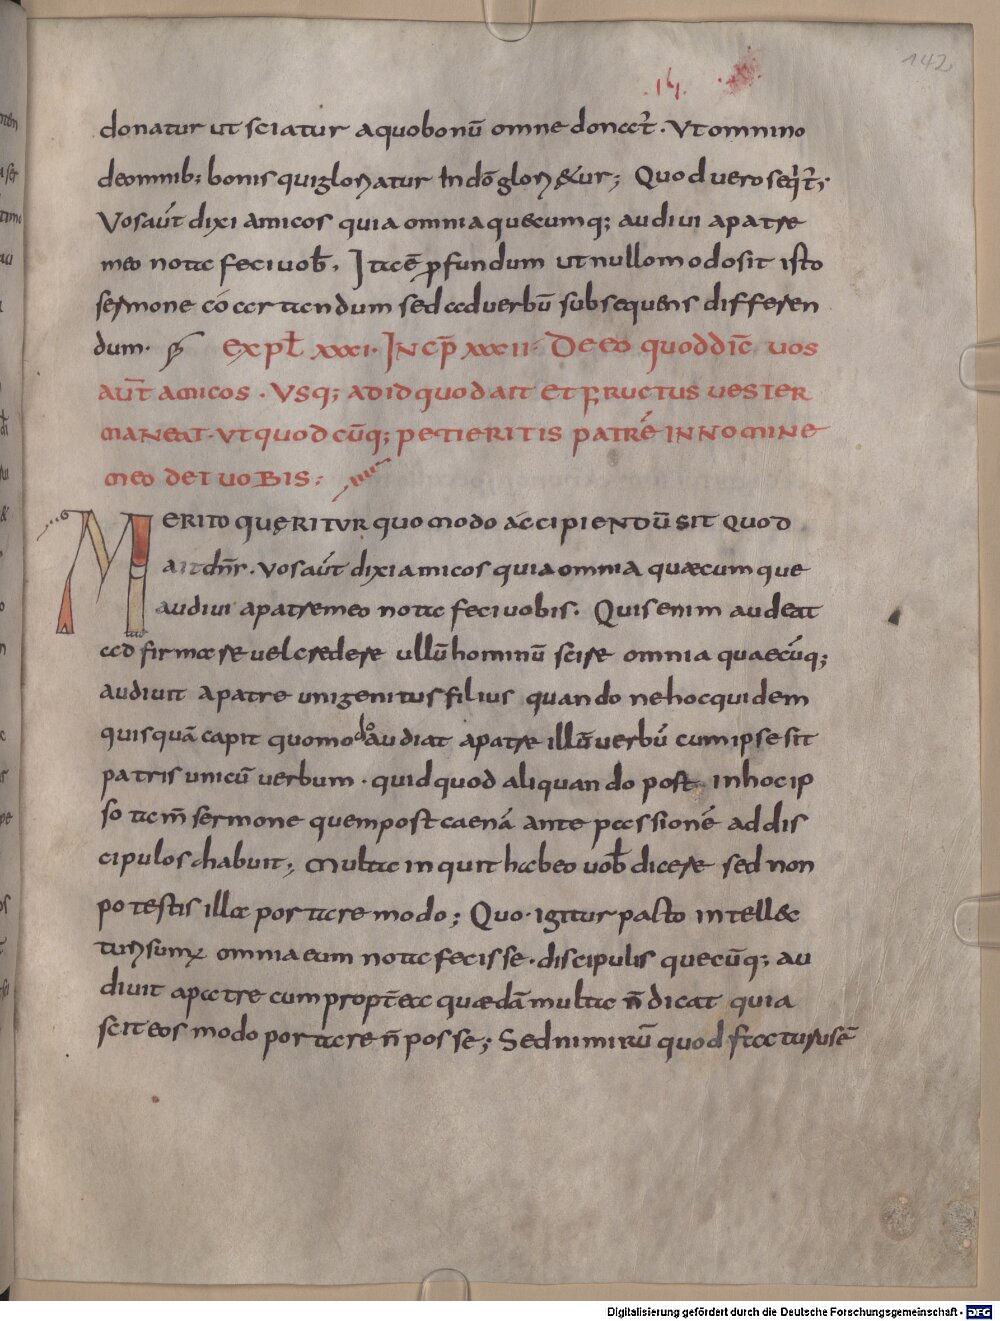 142
.14.
donatur ut sciatur a quo bonū omne donat̄. Ut omnino
de omnib; bonis qui gloriatur In dō glori&ur; Quod vero seqit̄;
Vos aūt dixi amicos quia omnia quęcumq; audivi a patre
meo nota feci vob̄. Ita ē p̱fundum ut nullo modo sit isto
sermone coartandum sed ad verbū subsequens differen
dum.
EXPL̄ XXXI. INCP̄ XXXII. De eo quod dic̄ vos
aūt amicos. Usq; ad id quod ait et fructus vester
maneat. ut quodcūq; petieritis patrē in nomine
meo det vobis;
Merito quęritur quomodo accipiendū sit quod
ait dn̄s. vos aūt dixi amicos quia omnia quæcumque
audivi a patre meo nota feci vobis. Quis enim audeat
adfirmare vel credere ullū hominū scire omnia quaecūq;
audivit a patre unigenitus filius quando ne hoc quidem
quisquā capit quomodo audiat a patre illū verbū cum ipse sit
patris unicū verbum. quid quod aliquando post in hoc ip
so tam̄ sermone quem post caenā ante passionē ad dis
cipulos habuit; Multa inquit habeo vob̄ dicere sed non
potestis illa portare modo; Quo igitur pacto intellec
turi sum' omnia eum nota fecisse. discipulis quecūq; au
divit a patre cum propt̄ea quædā multa n̄ dicat quia
scit eos modo portare n̄ posse; Sed nimirū quod facturus ē
Digitalisierung gefördert durch die Deutsche Forschungsgemeinschaft - DFG